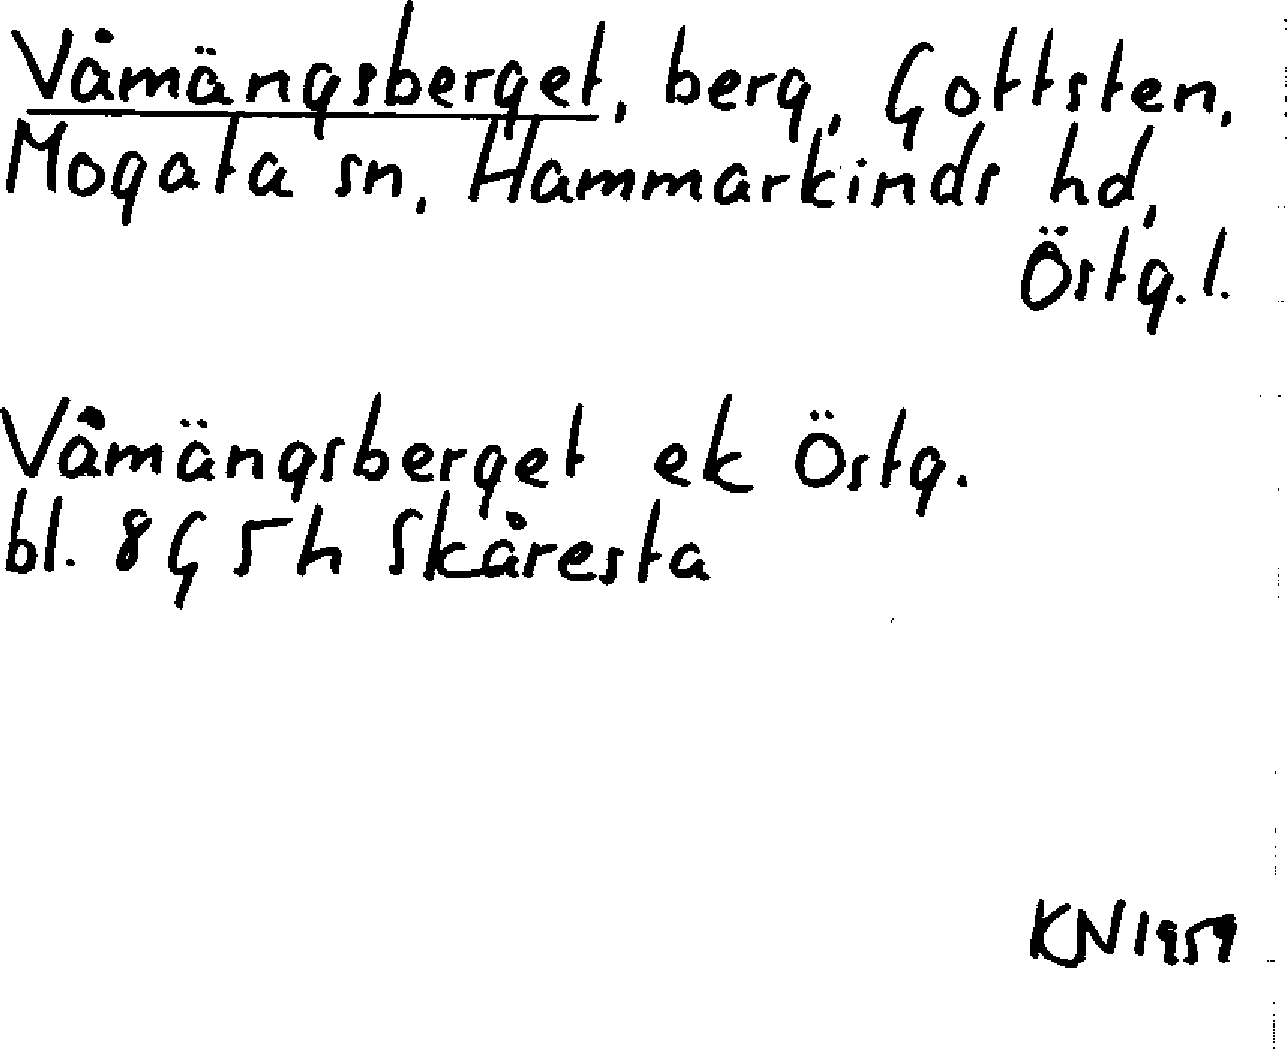 Våmängsberget, berg, Gottsten,
Mogata sn, Hammarkinds hd,
Östg. l.
Våmängsberget ek Östg.
bl. 8 G 5 h Skåresta
KN 1959